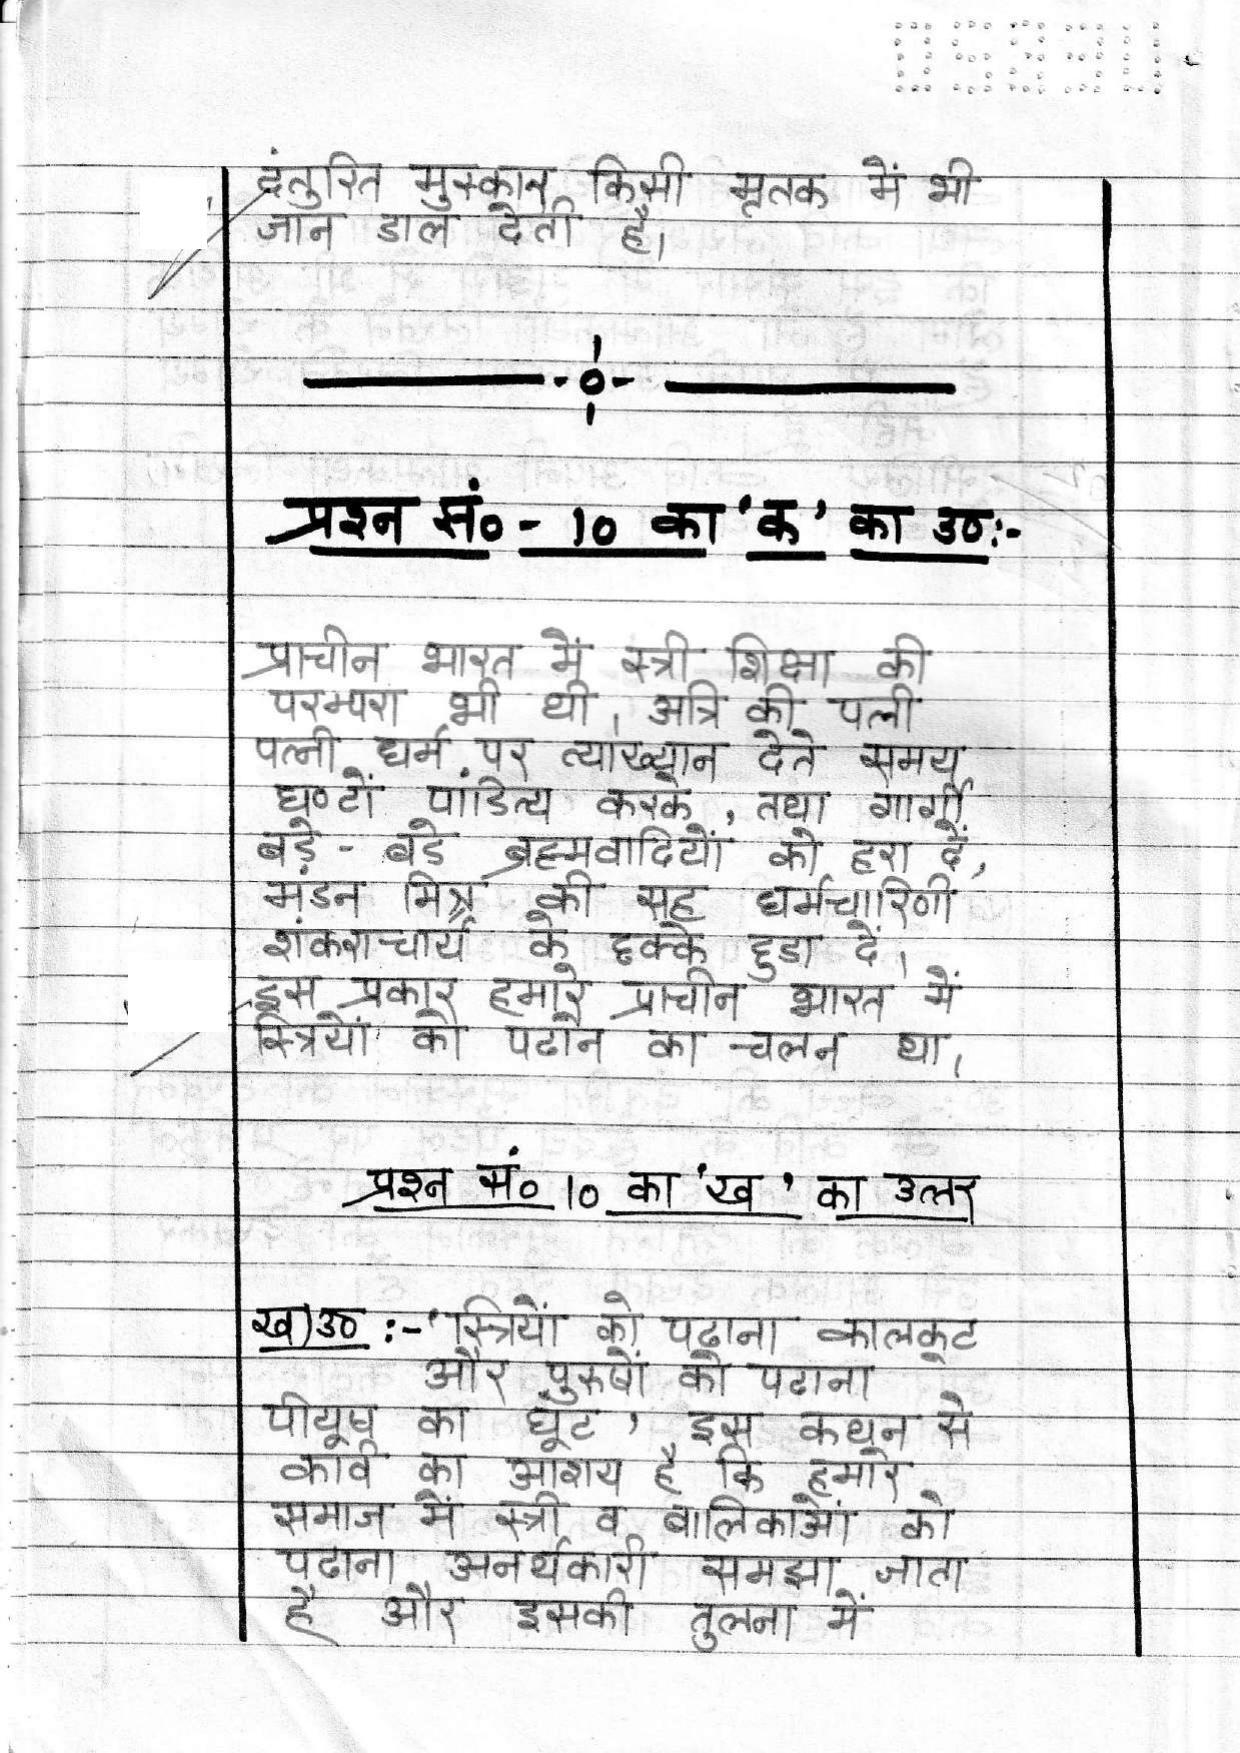 दंतुरित मुस्कान किसी मृतक में भी
जान डाल देती है।
प्रश्न सं० - 10 का 'क' का उ०:-
प्राचीन भारत में स्त्री शिक्षा की
परम्परा भी थी। अत्रि की पत्नी
पत्नी धर्म पर व्याख्यान देते समय
घण्टों पांडित्य करके, तथा गार्गी
बड़े - बडे ब्रह्मवादियों को हरा दें,
मंडन मिश्र की सह धर्मचारिणी
शंकराचार्य के छक्के छुडा दें।
इस प्रकार हमारे प्राचीन भारत में
स्त्रियों को पढाने का चलन था।
प्रश्न सं० 10 का 'ख' का उत्तर
ख) उ० :- 'स्त्रियों को पढाना कालकूट
और पुरुषों को पढाना
पीयूष का घूंट' इस कथन से
कवि का आशय है कि हमारे
समाज में स्त्री व बालिकाओं को
पढाना अनर्थकारी समझा जाता
है और इसकी तुलना में